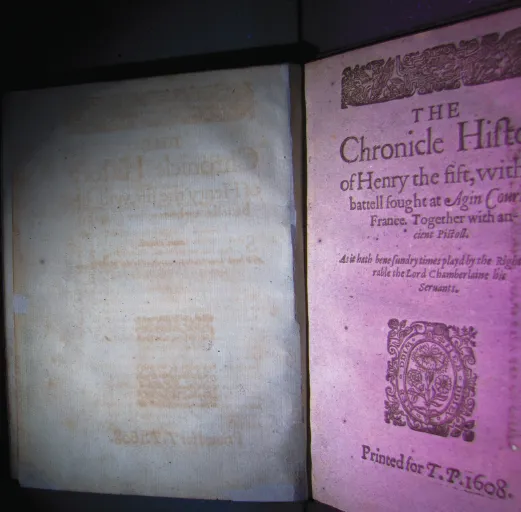 THE
Chronicle Histo
of Henry the fift, with
battell fought at Agin Cour
France. Together with an-
cient Pistoll.
As it hath bene sundry times playd by the Right
rable the Lord Chamberlaine his
Seruants.
Printed for T. P. 1608.